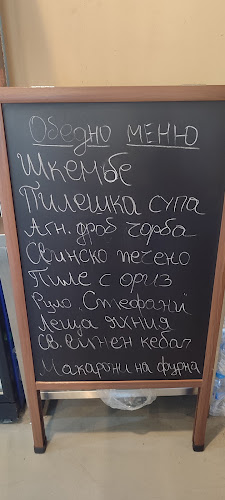 Обедно меню
Шкембе
Пилешка супа
Агн. дроб чорба
Свинско печено
Пиле с ориз
Руло „Стефани"
Леща яхния
Св. винен кебап
Макарони на фурна